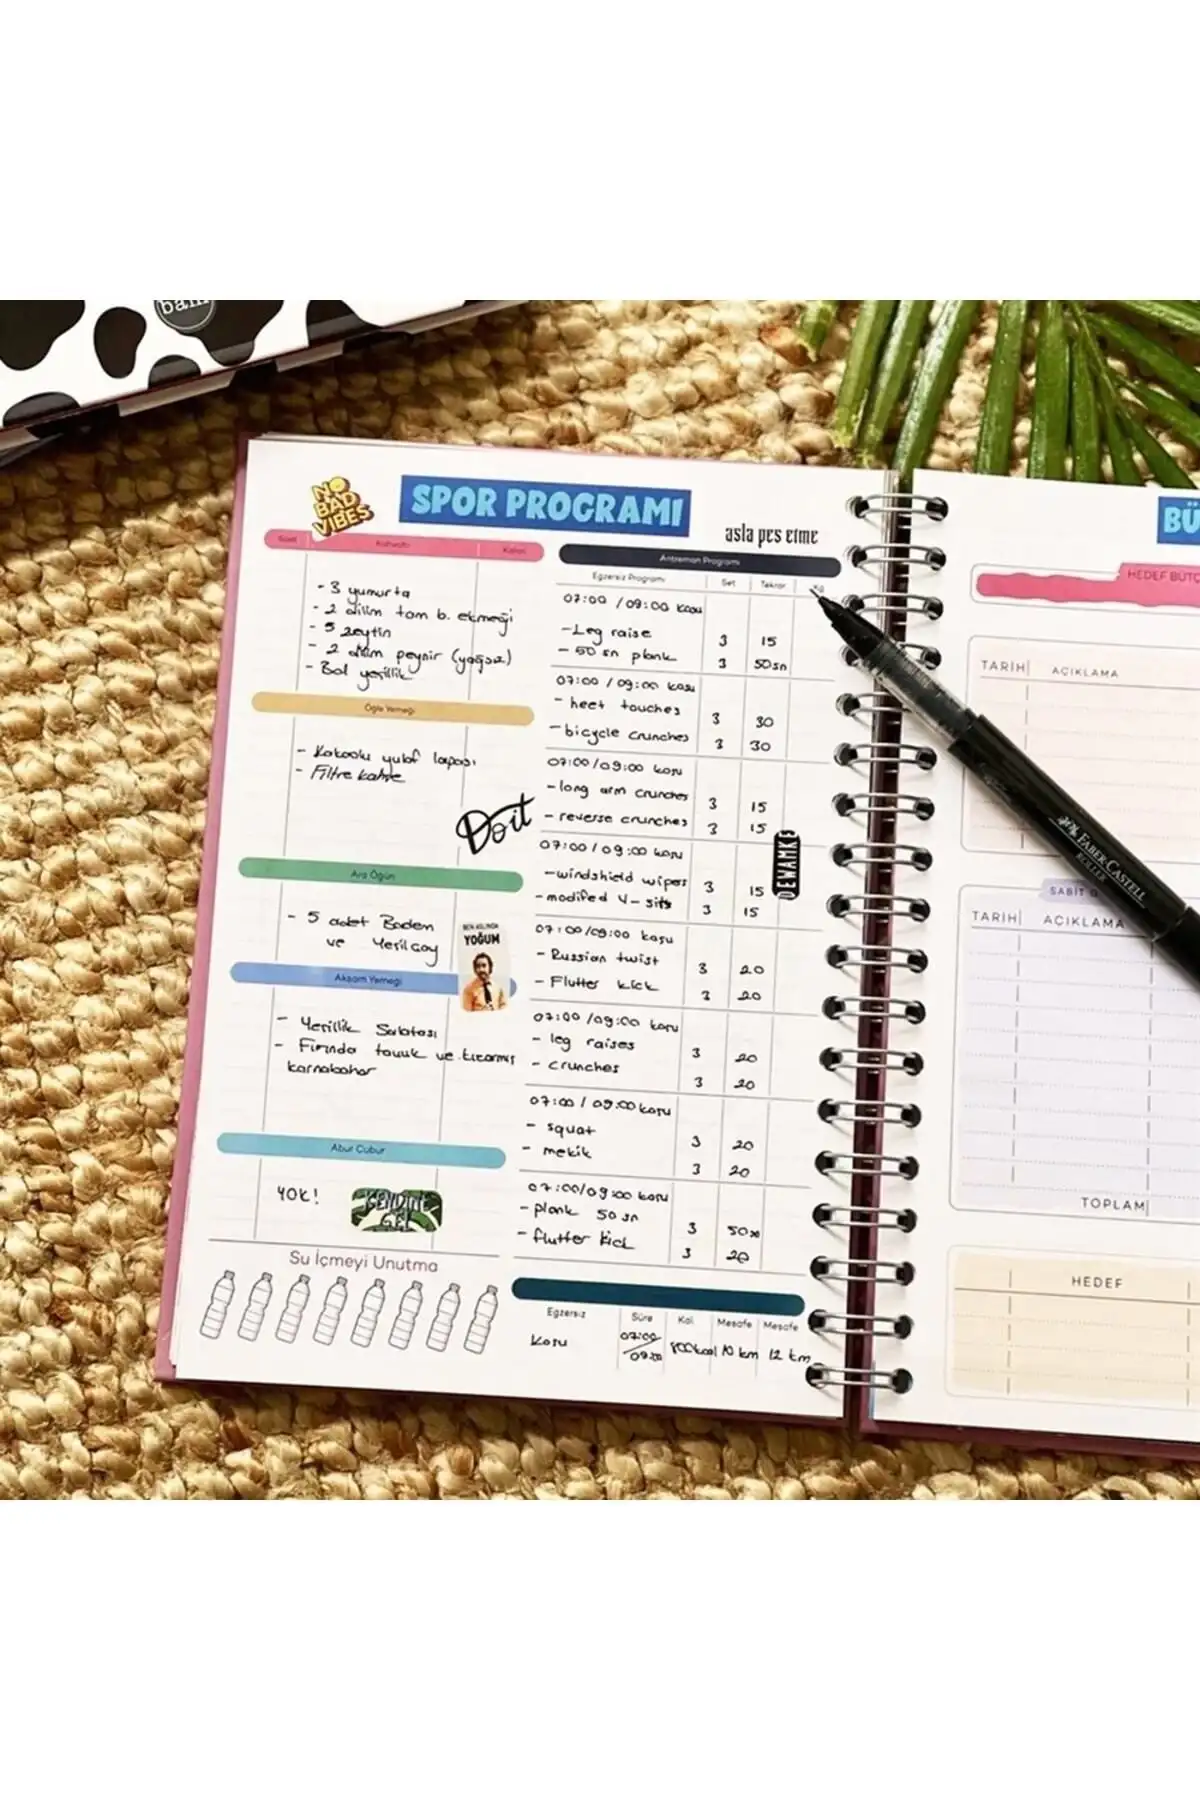 bam
NO
BAD
VIBES
SPOR PROGRAMI
asla pes etme
Saat Kahvaltı Kalori
- 3 yumurta
- 2 dilim tam b. ekmeği
- 5 zeytin
- 2 dilim peynir (yağsız)
- Bol yeşillik
Öğle Yemeği
- Kakaolu yulaf lapası
- Filtre kahve
Do it
Ara Öğün
- 5 adet Badem
ve Yeşilçay
BEN ASLINDA
YOĞUM
Akşam Yemeği
- Yeşillik Salatası
- Fırında tavuk ve kızarmış
karnabahar
Abur Cubur
YOK!
KENDİNE
GEL
Su İçmeyi Unutma
Antrenman Programı
Egzersiz Programı Set Tekrar Kg
07:00 / 09:00 koşu
- Leg raise 3 15
- 50 sn plank 3 50sn
07:00 / 09:00 koşu
- heet touches 3 30
- bicycle crunches 3 30
07:00 / 09:00 koşu
- long arm crunches 3 15
- reverse crunches 3 15
07:00 / 09:00 koşu
- windshield wipers 3 15
- modified V-sits 3 15
DEWAMKE
07:00/09:00 koşu
- Russian twist 3 20
- Flutter kick 3 20
07:00 /09:00 koşu
- leg raises 3 20
- crunches 3 20
07:00 / 09:00 koşu
- squat 3 20
- mekik 3 20
07:00/09:00 koşu
- plank 50 sn 3 50sn
- flutter kick 3 20
Egzersiz Süre Kal. Mesafe Mesafe
Koşu 07:00/09:00 800kcal 10 km 12 km
BÜ
HEDEF BÜTÇ
TARİH AÇIKLAMA
SABİT G
TARİH AÇIKLAMA
TOPLAM
HEDEF
FABER-CASTELL
ROLLER